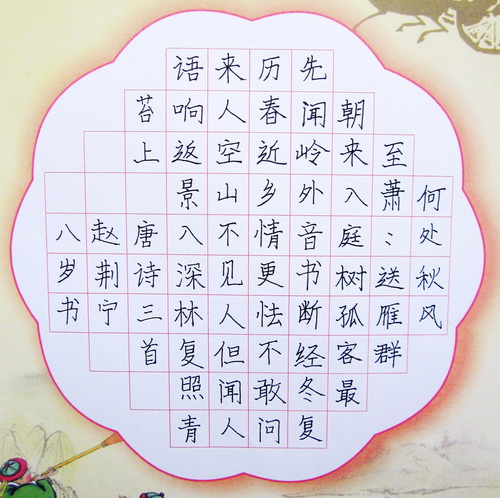 何处秋风
至萧々送雁群
朝来入庭树孤客最
先闻岭外音书断经冬复
历春近乡情更怯不敢问
来人空山不见人但闻人
语响返景入深林复照青
苔上唐诗三首
赵荆宁
八岁书